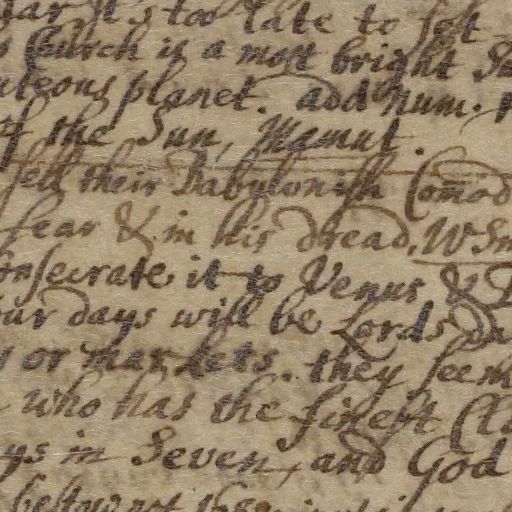 it's too late to set
Church is a most bright
uteous planet. add num.
of the Sun, Memul.
sell their Babylonish Comod
fear & in his dread. WSm
onsecrate it to Venus &
our days will be Lords
or markets. they seem
who has the finest
ys in Seven, and God
bestow not